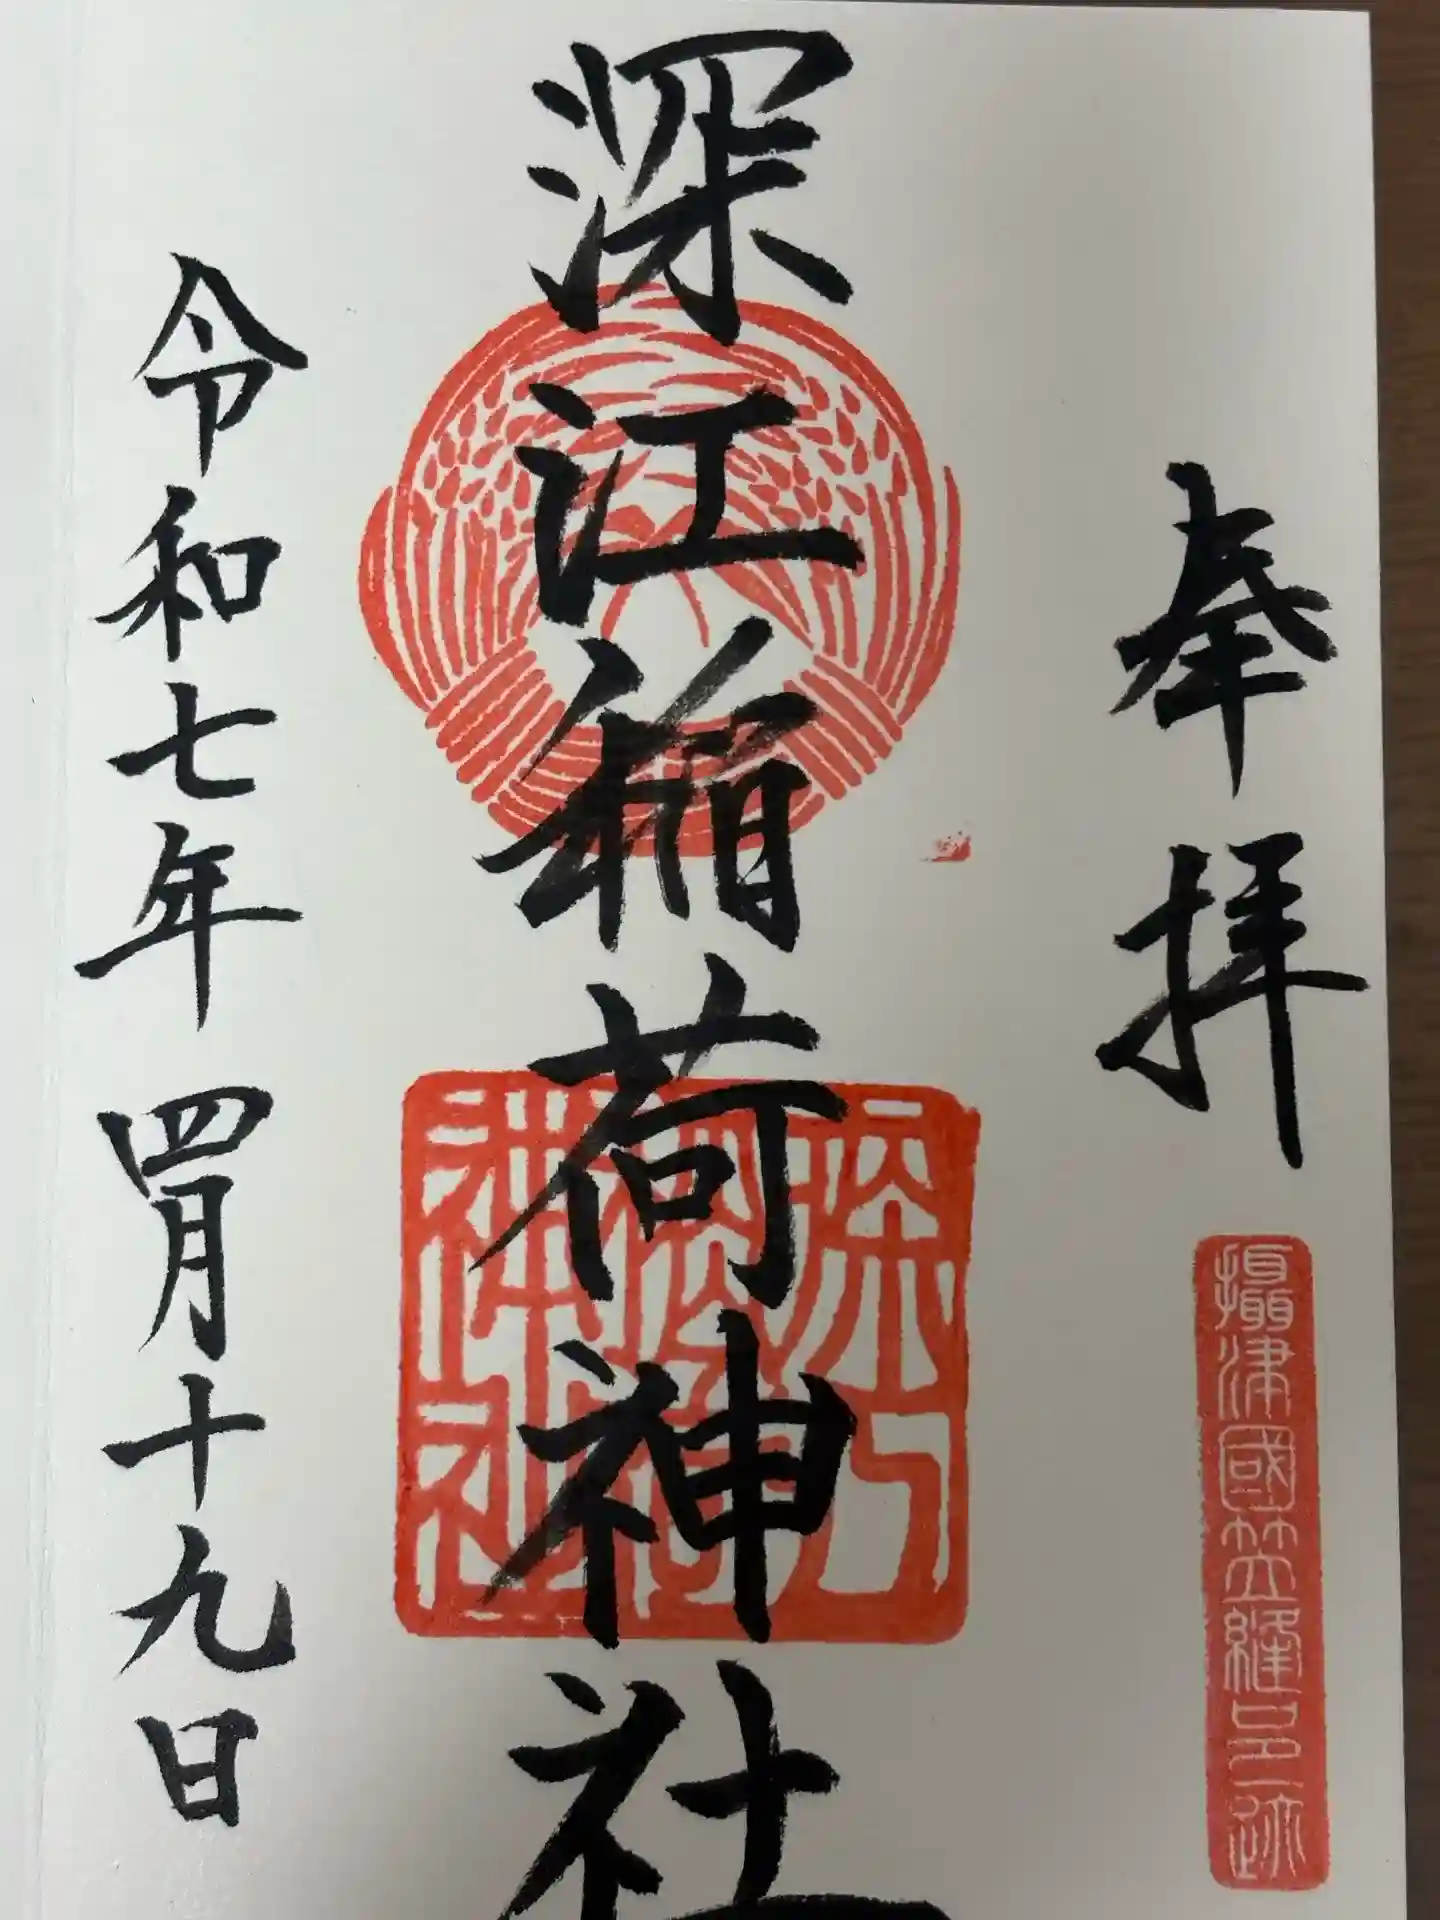 奉拝
攝津國笠縫邑跡
深江稲荷神社
深江稲荷神社
令和七年四月十九日